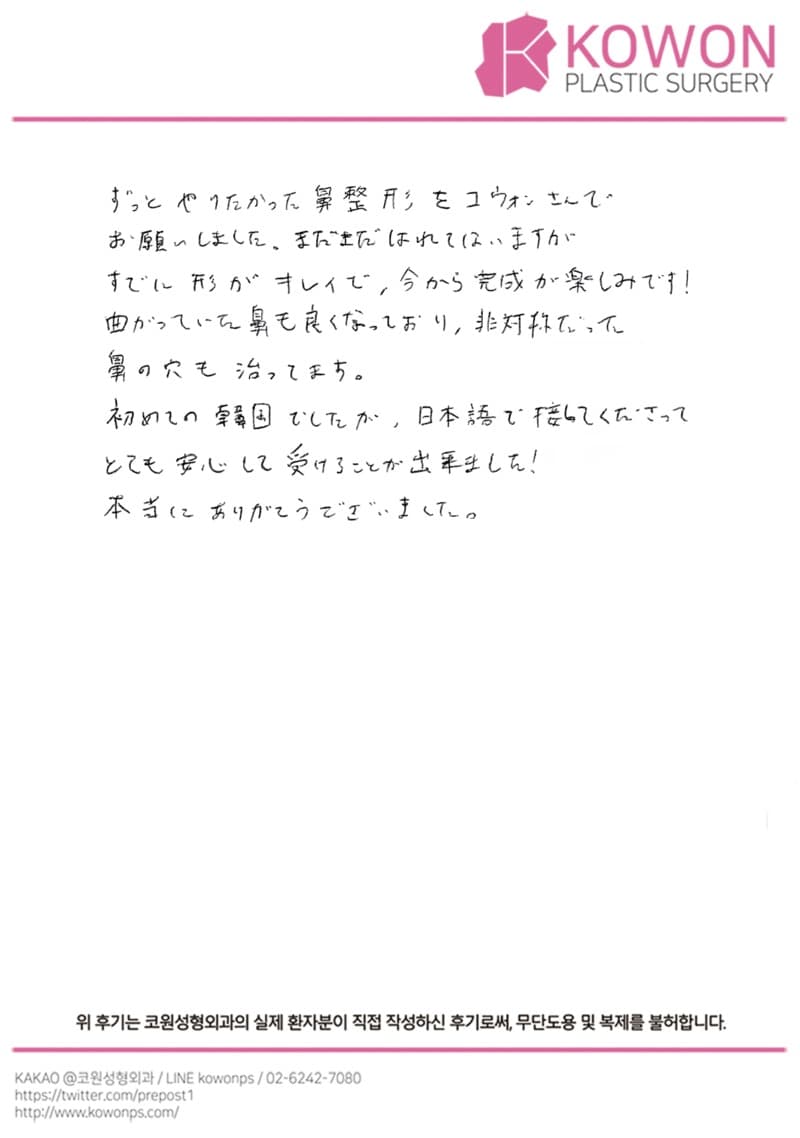 KOWON
PLASTIC SURGERY
ずっと やりたかった 鼻整形 を コウォン さんで
お願いしました。まだまだ はれてはいますが
すでに 形が キレイで, 今から 完成が楽しみです!
曲がっていた鼻も良くなっており, 非対称だった
鼻の穴も 治ってます。
初めての 韓国 でしたが, 日本語で接してくださって
とても 安心して 受けることが出来ました!
本当に ありがとうございました。
위 후기는 코원성형외과의 실제 환자분이 직접 작성하신 후기로써, 무단도용 및 복제를 불허합니다.
KAKAO @코원성형외과 / LINE kowonps / 02-6242-7080
https://twitter.com/prepost1
http://www.kowonps.com/